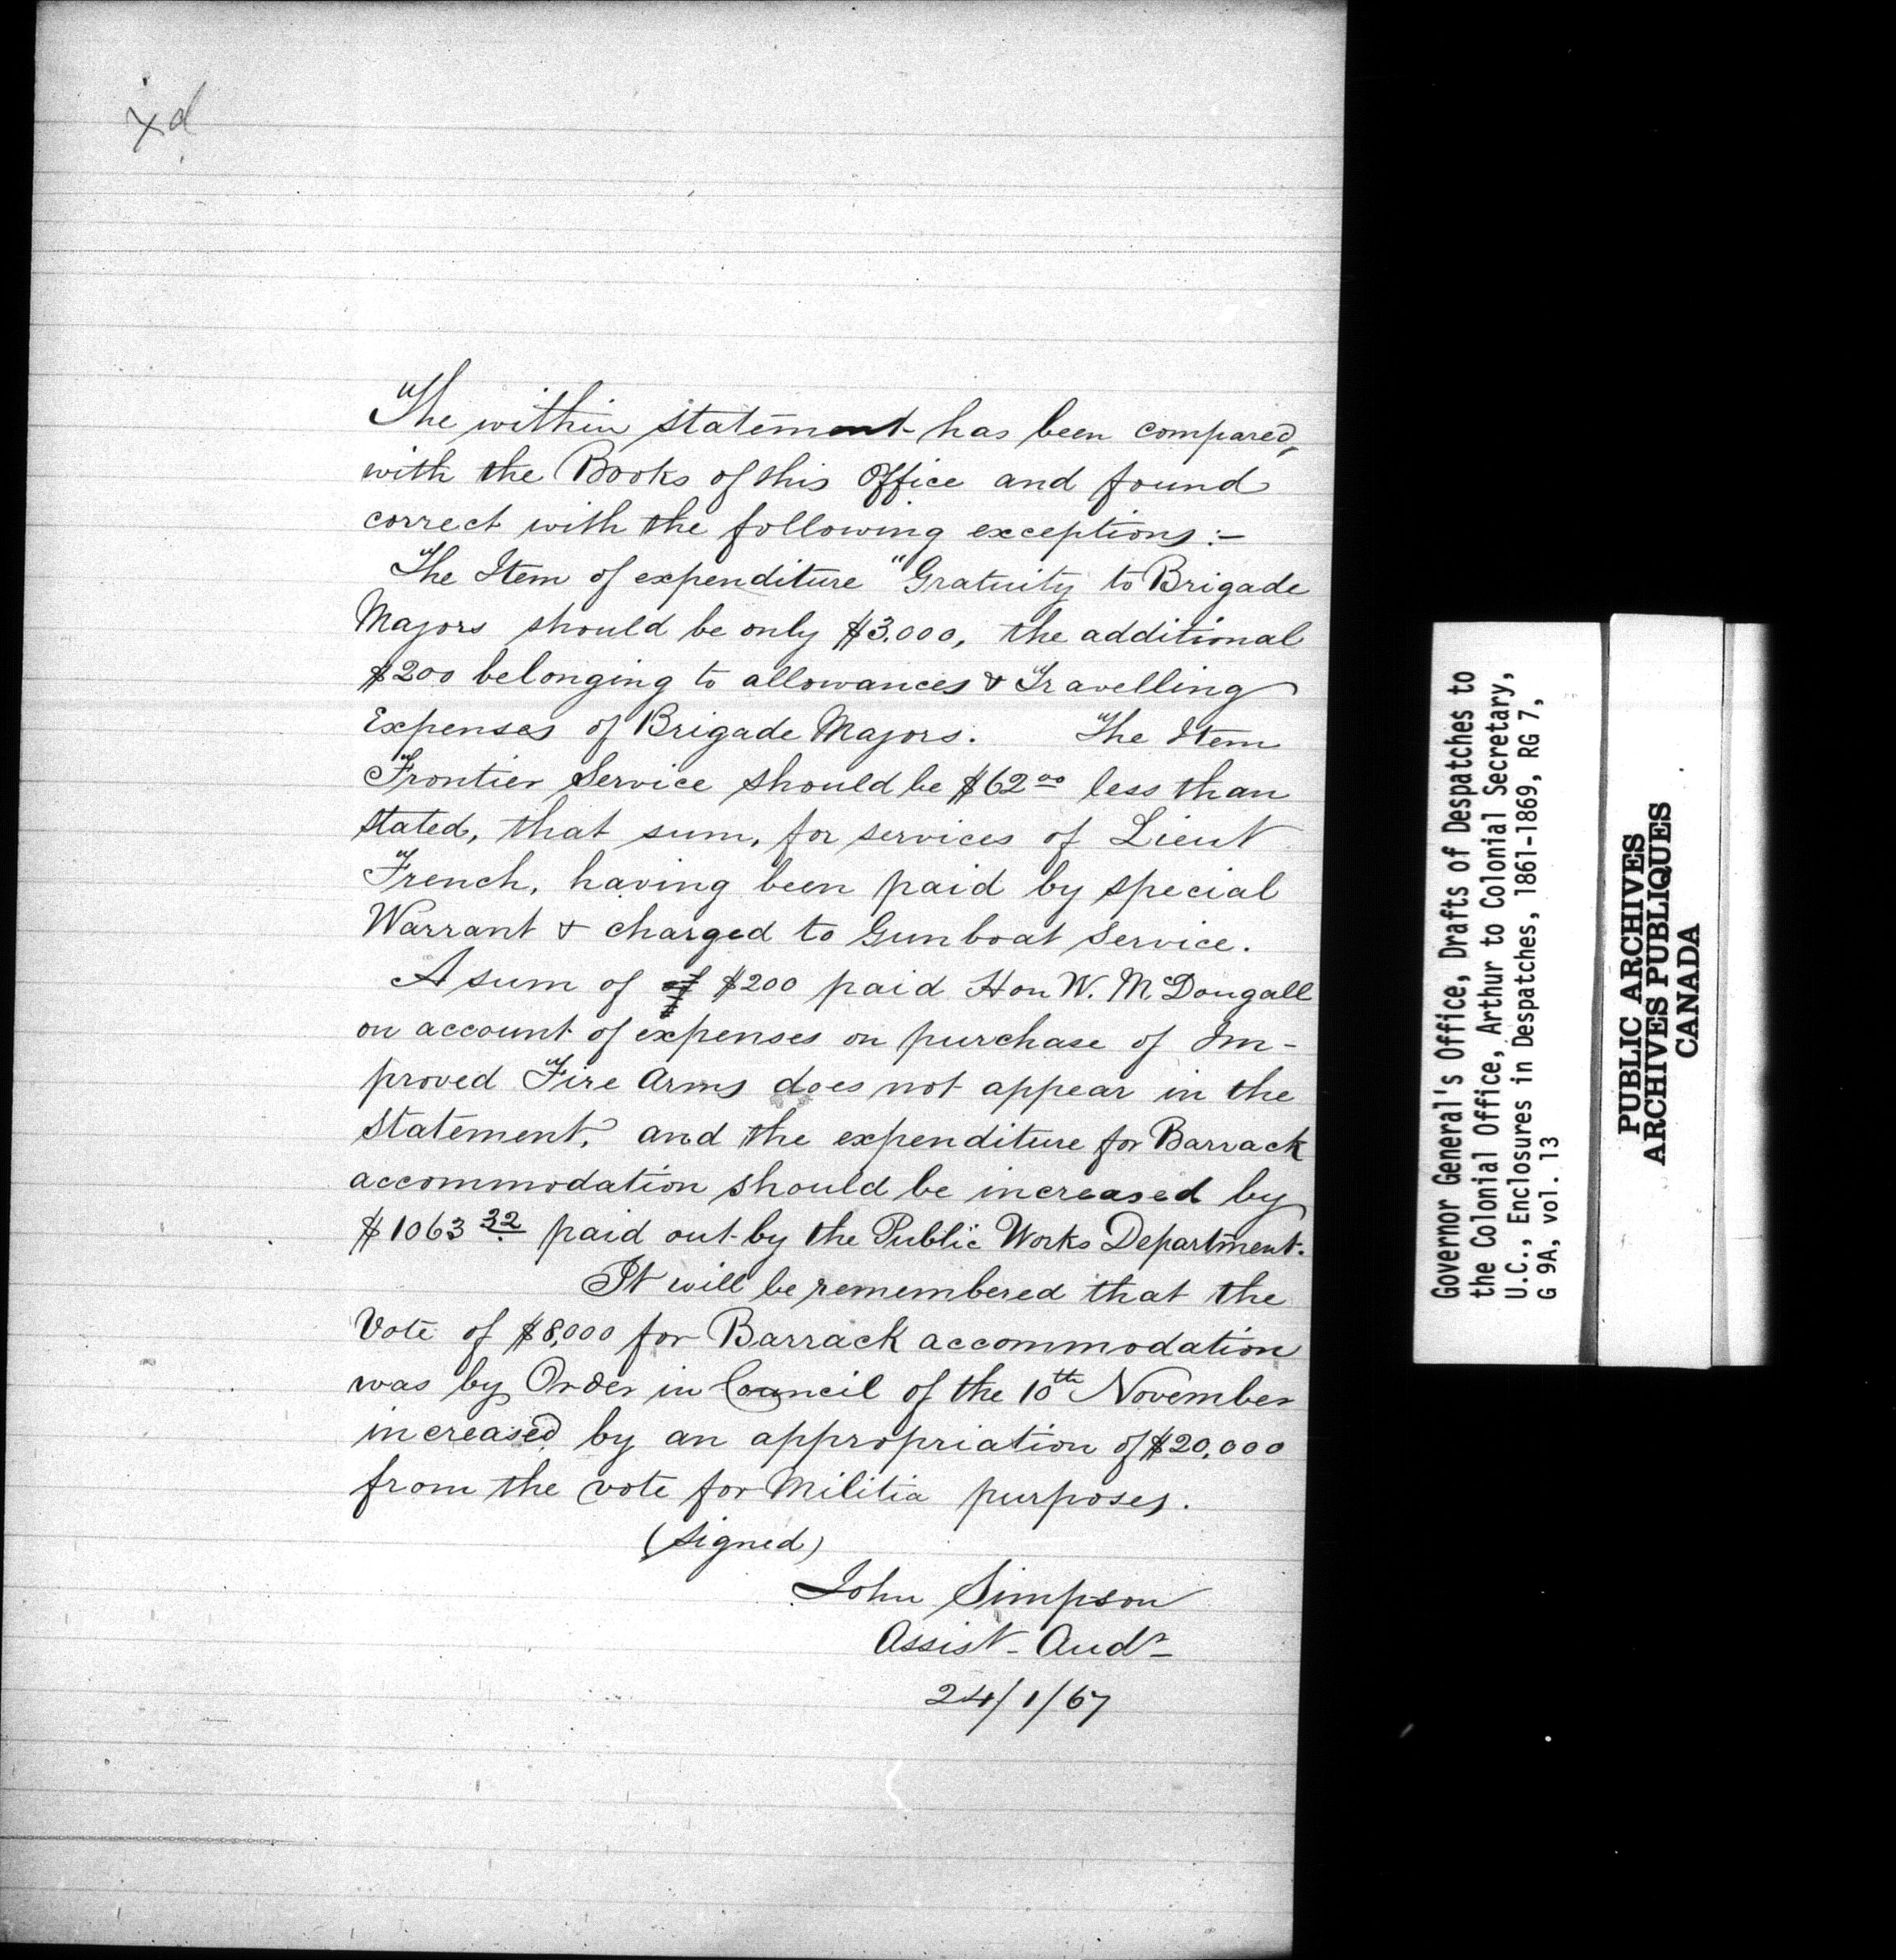 xd
The within statement has been compared,
with the Books of this Office and found
correct with the following exceptions:-
The Item of expenditure "Gratuity to Brigade
Majors should be only $3.000, the additional
$200 belonging to allowances & Travelling
Expenses of Brigade Majors. The Item
Frontier Service should be $62 00 less than
stated, that sum, for services of Lieut
French, having been paid by special
Warrant & charged to Gunboat Service.
A sum of of $200 paid Hon W. McDougall
on account of expenses on purchase of Im-
proved Fire Arms does not appear in the
statement, and the expenditure for Barrack
accommodation should be increased by
$1063 32 paid out by the Public Works Department.
It will be remembered that the
Vote of $8,000 for Barrack accommodation
was by Order in Council of the 10th November
increased by an appropriation of $20,000
from the vote for Militia purposes.
(signed)
John Simpson
Assist- Audr
24/1/67
Governor General's Office, Drafts of Despatches to
the Colonial Office, Arthur to Colonial Secretary,
U.C., Enclosures in Despatches, 1861-1869, RG 7,
G 9A, vol. 13
PUBLIC ARCHIVES
ARCHIVES PUBLIQUES
CANADA